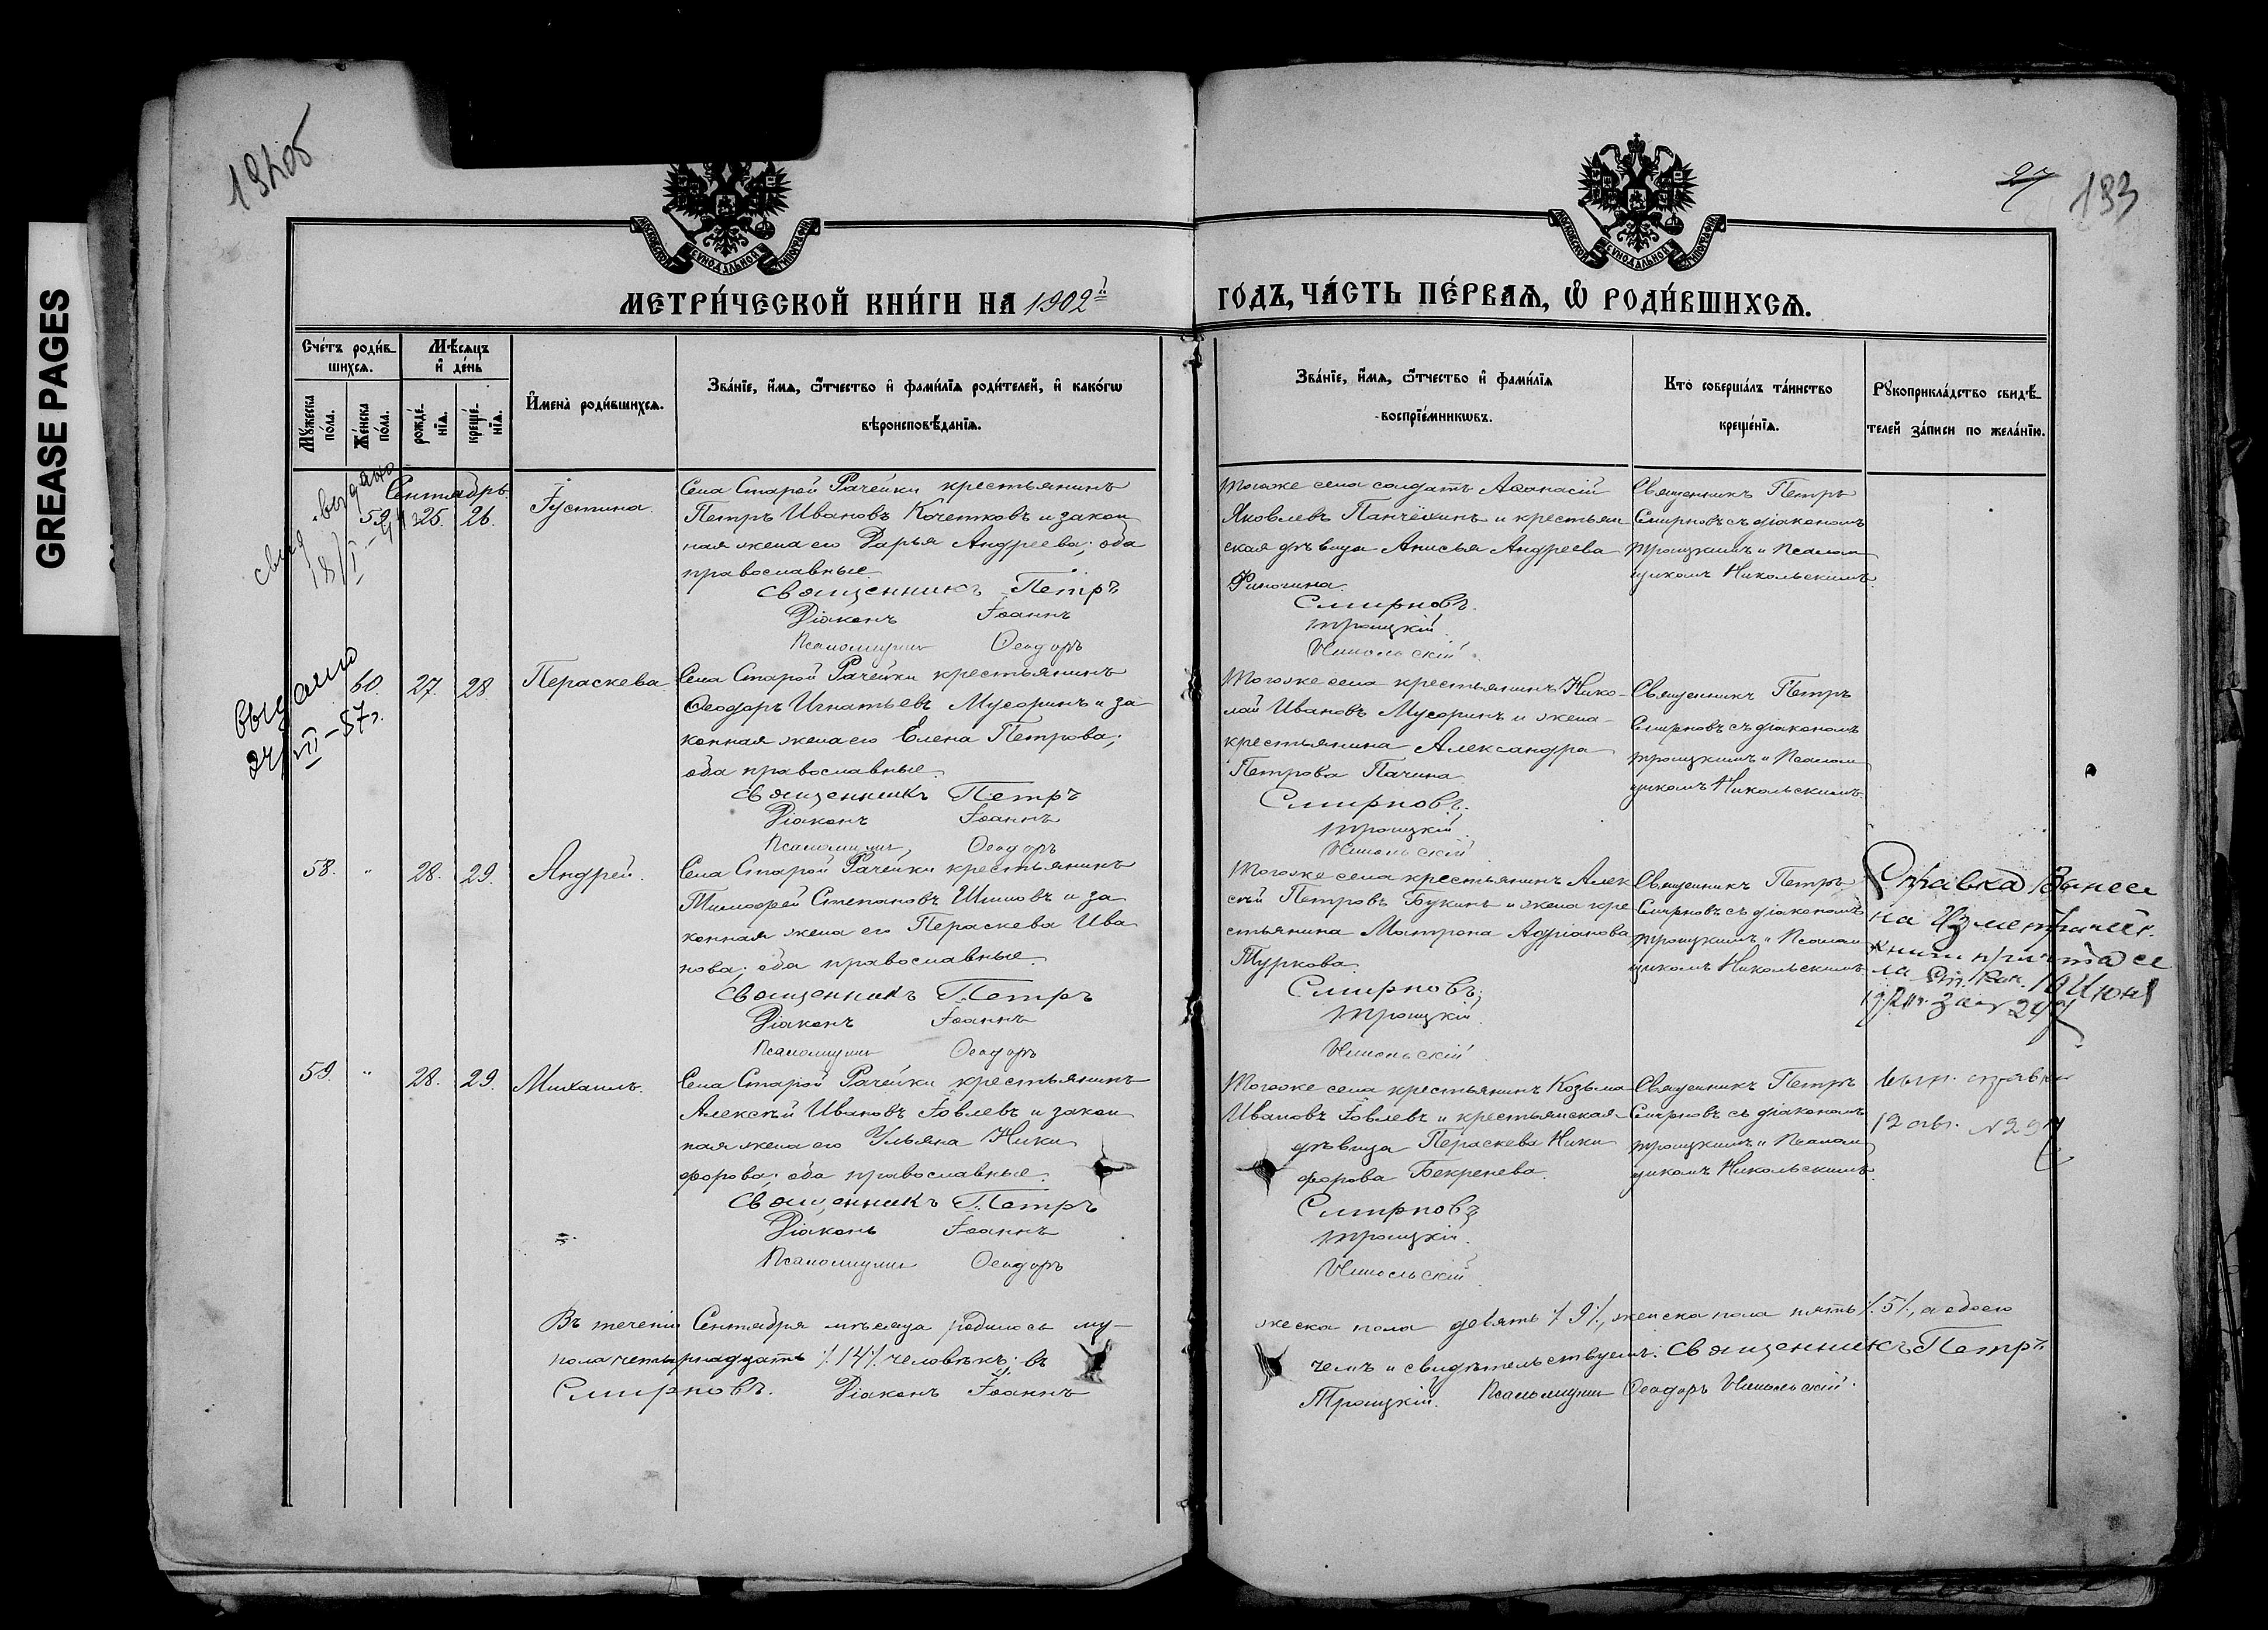 GREASE PAGES
183
27
МОСКОВСКОЙ СѴНОДАЛЬНОЙ ТИПОГРАФІИ
МОСКОВСКОЙ СѴНОДАЛЬНОЙ ТИПОГРАФІИ
МЕТРИ́ЧЕСКОЙ КНИ́ГИ НА 1902й
ГО́ДЪ, ЧА́СТЬ ПЕ́РВАѦ, Ѡ҆ РОДИ́ВШИХСѦ.
Сче́тъ роди́в-
шихсѧ.
Мꙋ́жеска по́ла.
Же́нска по́ла.
Мѣ́сѧцъ
и҆ де́нь
рожде́-
нїѧ.
креще́-
нїѧ.
И҆мена̀ роди́вшихсѧ.
Зва́нїе, и҆́мѧ, ѻ҆́тчество и҆ фами́лїѧ роди́телей, и҆ како́гѡ
вѣроисповѣ́данїѧ.
Зва́нїе, и҆́мѧ, ѻ҆́тчество и҆ фами́лїѧ
воспрїе́мникѡвъ.
Кто̀ соверша́лъ та́инство
креще́нїѧ.
Рꙋкоприкла́дство свидѣ́-
телей за́писи по жела́нїю.
Сентябрь.
59. 25. 26.
Іустина.
Села Старой Рачейки крестьянинъ
Петръ Ивановъ Кочетковъ и закон
ная жена его Дарья Андреева; оба
православные.
Священникъ Петръ
Діаконъ Іоаннъ
Псаломщикъ Ѳеодоръ
Тогоже села солдатъ Аѳанасій
Яковлевъ Панчёхинъ и крестьян
ская дѣвица Анисья Андреева
Смирновъ.
Троицкій.
Никольскій.
Священникъ Петръ
Смирновъ съ діакономъ
Троицкимъ и Псалом
щикомъ Никольскимъ.
выдано
VII-57г.
60. 27. 28
Параскева.
Села Старой Рачейки крестьянинъ
Ѳеодоръ Игнатьевъ Мусоринъ и за
конная жена его Елена Петрова;
оба православные.
Священникъ Петръ
Діаконъ Іоаннъ
Псаломщикъ Ѳеодоръ
Тогоже села крестьянинъ Нико-
лай Ивановъ Мусоринъ и жена
крестьянина Александра
Петрова Пачина
Смирновъ.
Троицкій.
Никольскій
Священникъ Петръ
Смирновъ съ діакономъ
Троицкимъ и Псалом
щикомъ Никольскимъ.
58. " 28. 29.
Андрей.
Села Старой Рачейки крестьянинъ
Тимофей Степановъ Шишовъ и за
конная жена его Параскева Ива
нова; оба православные.
Священникъ Петръ
Діаконъ Іоаннъ
Псаломщикъ Ѳеодоръ
Тогоже села крестьянинъ Алек
сѣй Петровъ Букинъ и жена кре
стьянина Матрона Адріанова
Туркова.
Смирновъ.
Троицкій
Никольскій.
Священникъ Петръ
Смирновъ съ діакономъ
Троицкимъ и Псалом
щикомъ Никольскимъ.
Справка
10 Июня
59. " 28. 29.
Михаилъ.
Села Старой Рачейки крестьянинъ
Алексѣй Ивановъ Іовлевъ и закон
ная жена его Ульяна Ники
форова; оба православные.
Священникъ Петръ
Діаконъ Іоаннъ
Псаломщикъ Ѳеодоръ
Тогоже села крестьянинъ Козьма
Ивановъ Іовлевъ и крестьянская
дѣвица Параскева Ники
форова Бекренева.
Смирновъ
Троицкій.
Никольскій
Священникъ Петръ
Смирновъ съ діакономъ
Троицкимъ и Псалом
щикомъ Никольскимъ.
Въ теченіи Сентября мѣсяца родилось му-
жеска пола девять /9/, женска пола пять /5/, а обоего
пола четырнадцать /14/ человѣкъ; въ
чемъ и свидѣтельствуемъ: Священникъ Петръ
Смирновъ. Діаконъ Іоаннъ
Троицкій. Псаломщикъ Ѳеодоръ Никольскій.